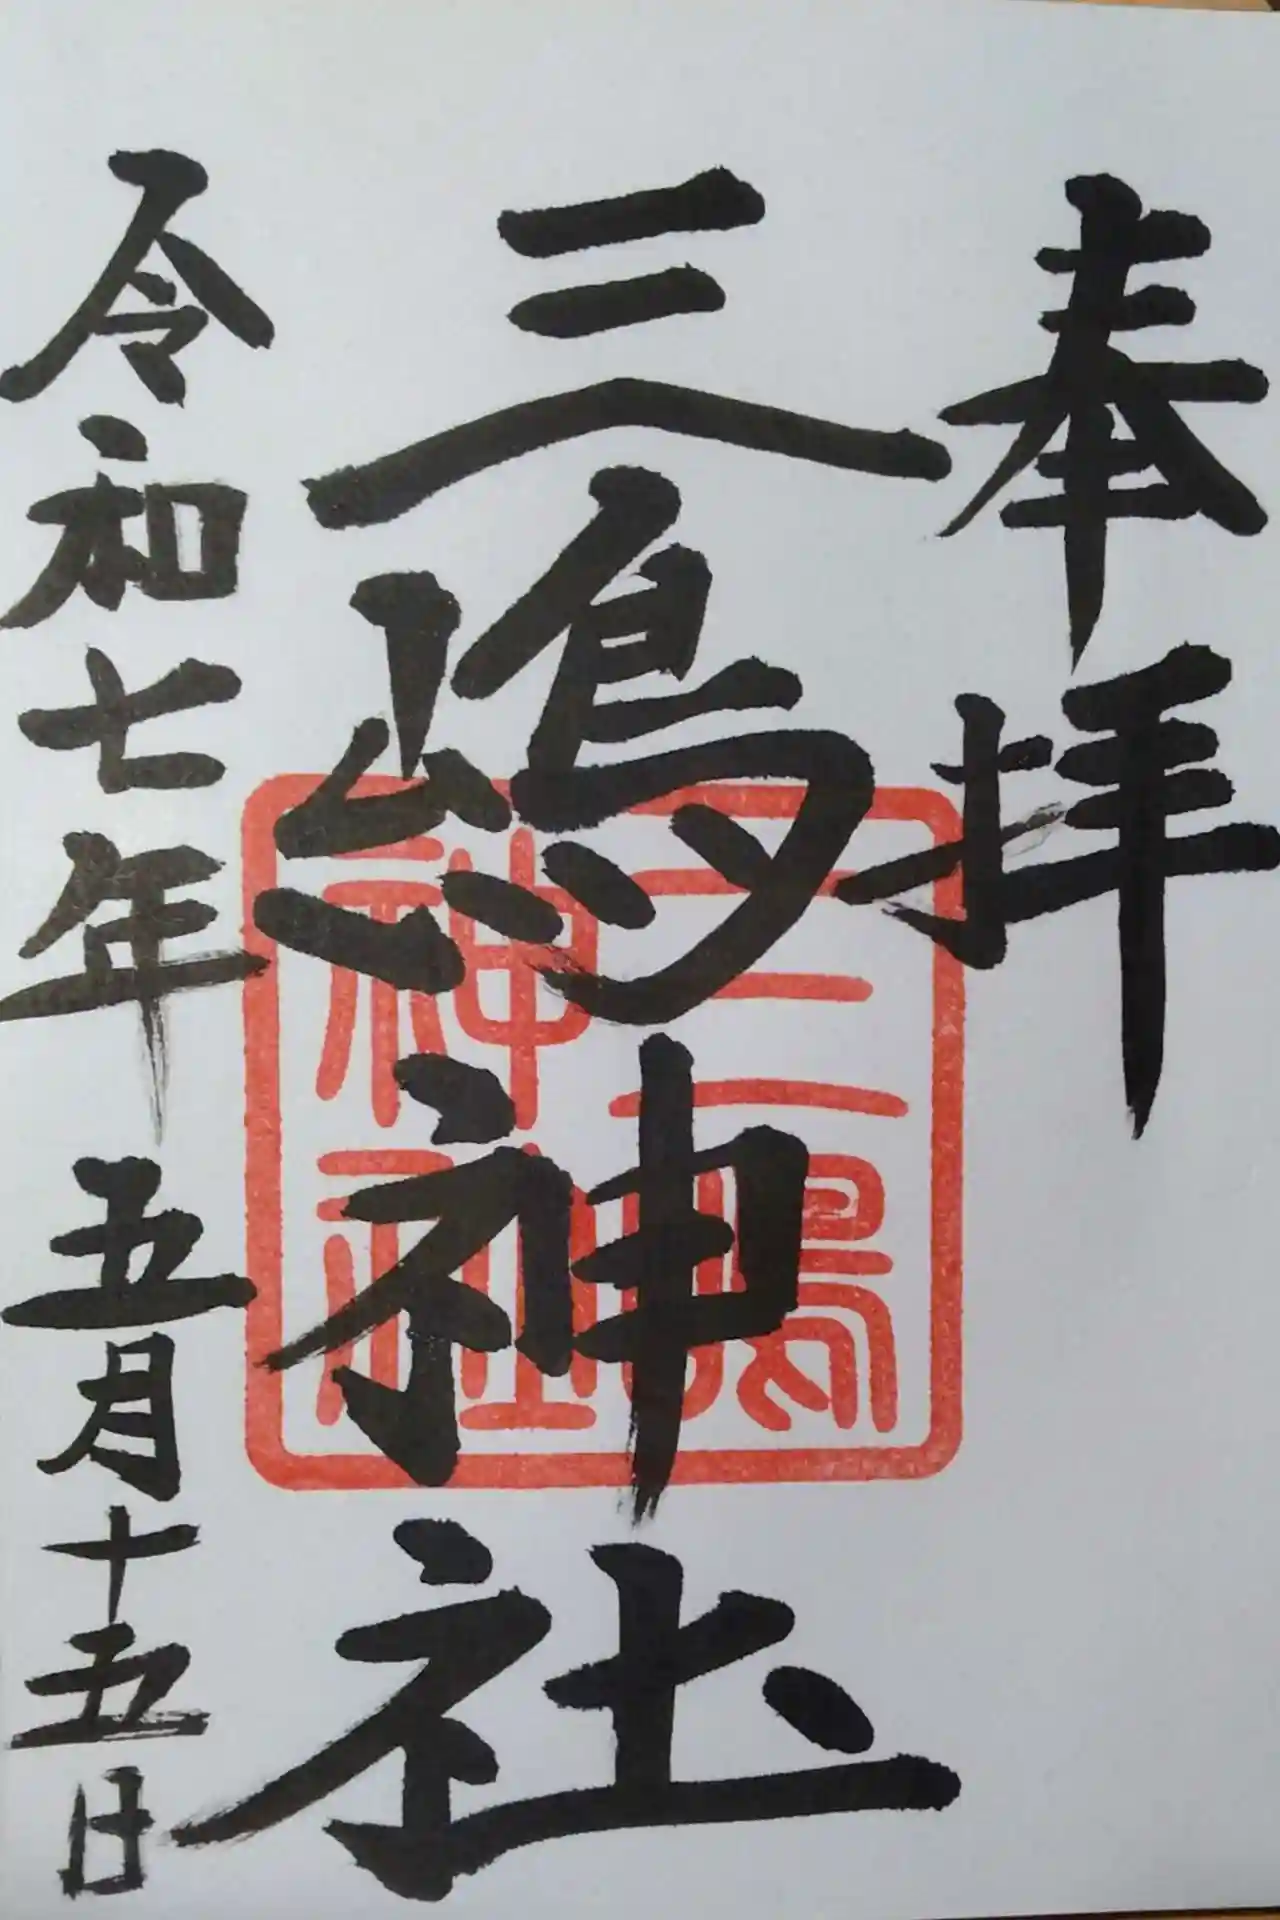 奉拝
三嶋神社
三嶋神社
令和七年五月十五日